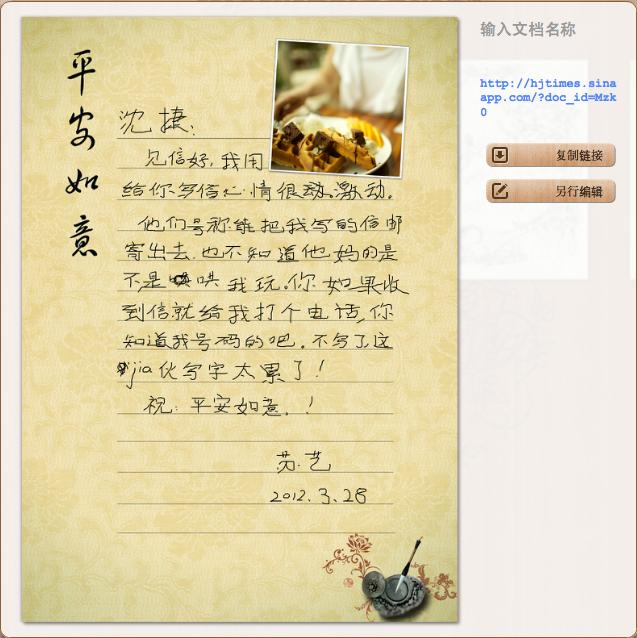 平安如意
沈捷:
见信好,我用
给你写信心情很激动。激动。
他们号称能把我写的信邮
寄出去,也不知道他妈的是
不是 哄我玩。你如果收
到信就给我打个电话,你
知道我号码的吧。不写了,这
jia伙写字太累了!
祝:平安如意。!
苏艺
2012.3.28
输入文档名称
http://hjtimes.sina
app.com/?doc_id=Mzk
0
复制链接
另行编辑